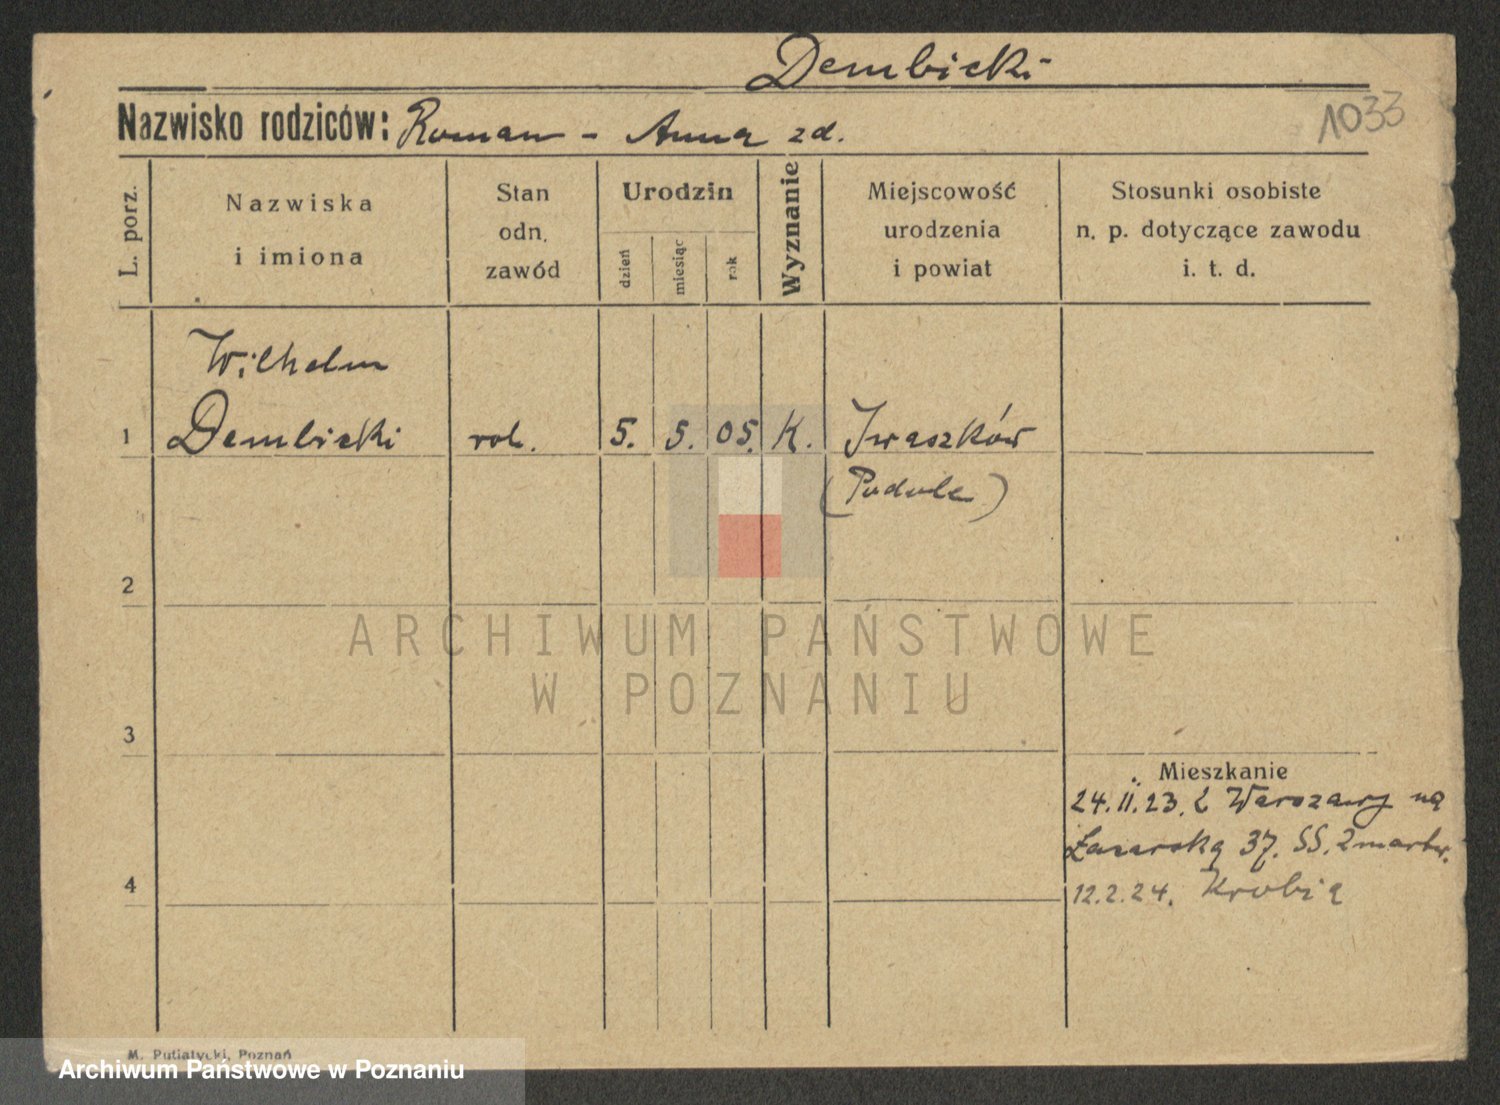 Dembicki
1033
Nazwisko rodziców: Roman - Anna zd.
L. porz.
Nazwiska
i imiona
Stan
odn.
zawód
Urodzin
dzień
miesiąc
rok
Wyznanie
Miejscowość
urodzenia
i powiat
Stosunki osobiste
n. p. dotyczące zawodu
i. t. d.
Wilhelm
1 Dembicki rob. 5. 5. 05. K. Iwaszków
(Podole)
2
ARCHIWUM PAŃSTWOWE
W POZNANIU
3
Mieszkanie
24.11.23. z Warszawy na
37. SS.
4
12.2.24. Krobia
M. Putiatycki, Poznań
Archiwum Państwowe w Poznaniu